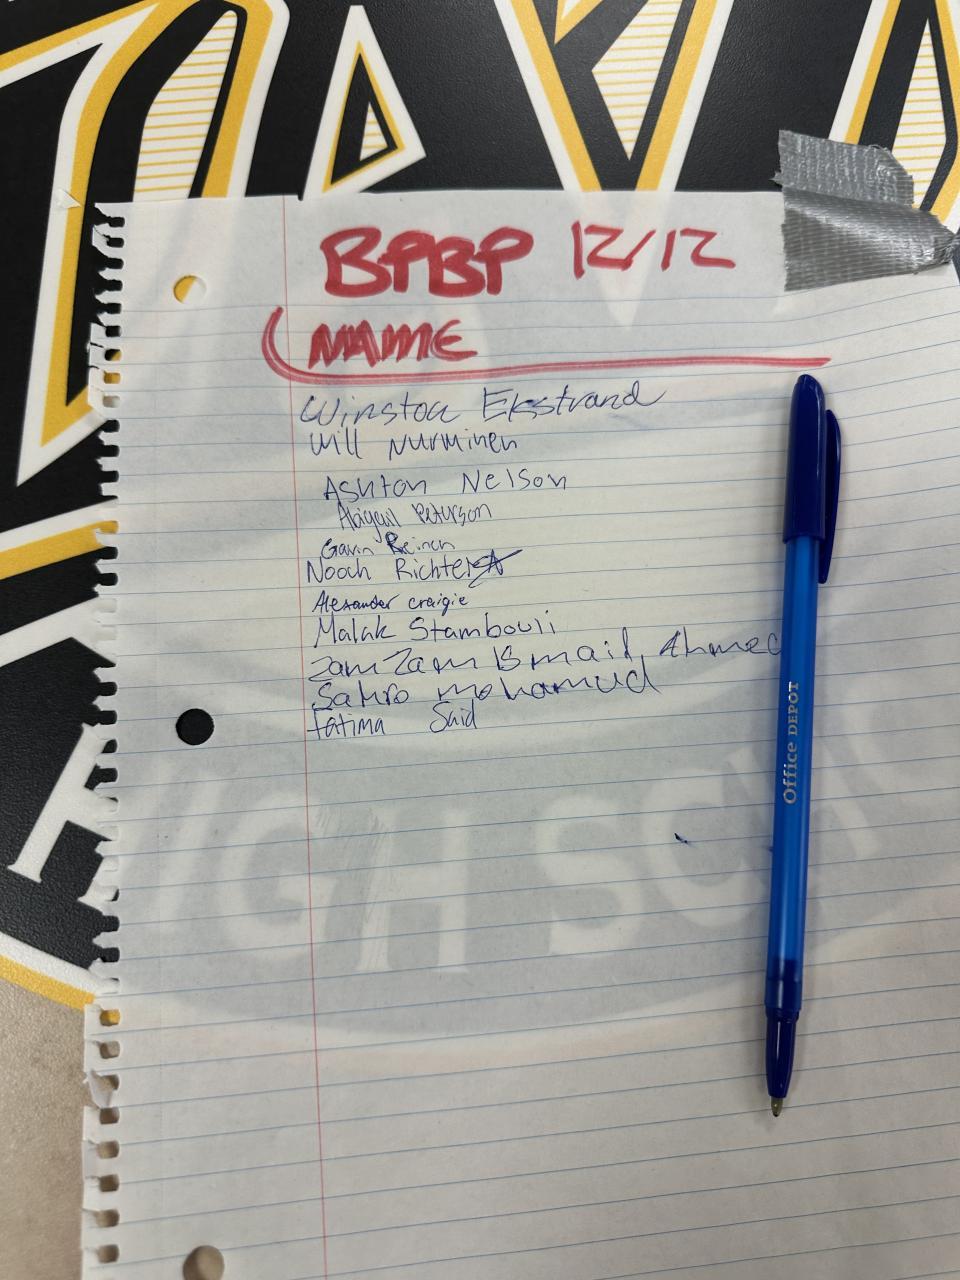 BPBP 12/12
NAME
Winston Ekstrand
Will Nurminen
Ashton Nelson
Abigail Peterson
Gavin Reinen
Nooah Richter
Alexander craigie
Malak Stambouli
ZamZam Ismail, Ahmed
Sahro mohamud
Fatima Said
Office DEPOT
IGH SCH